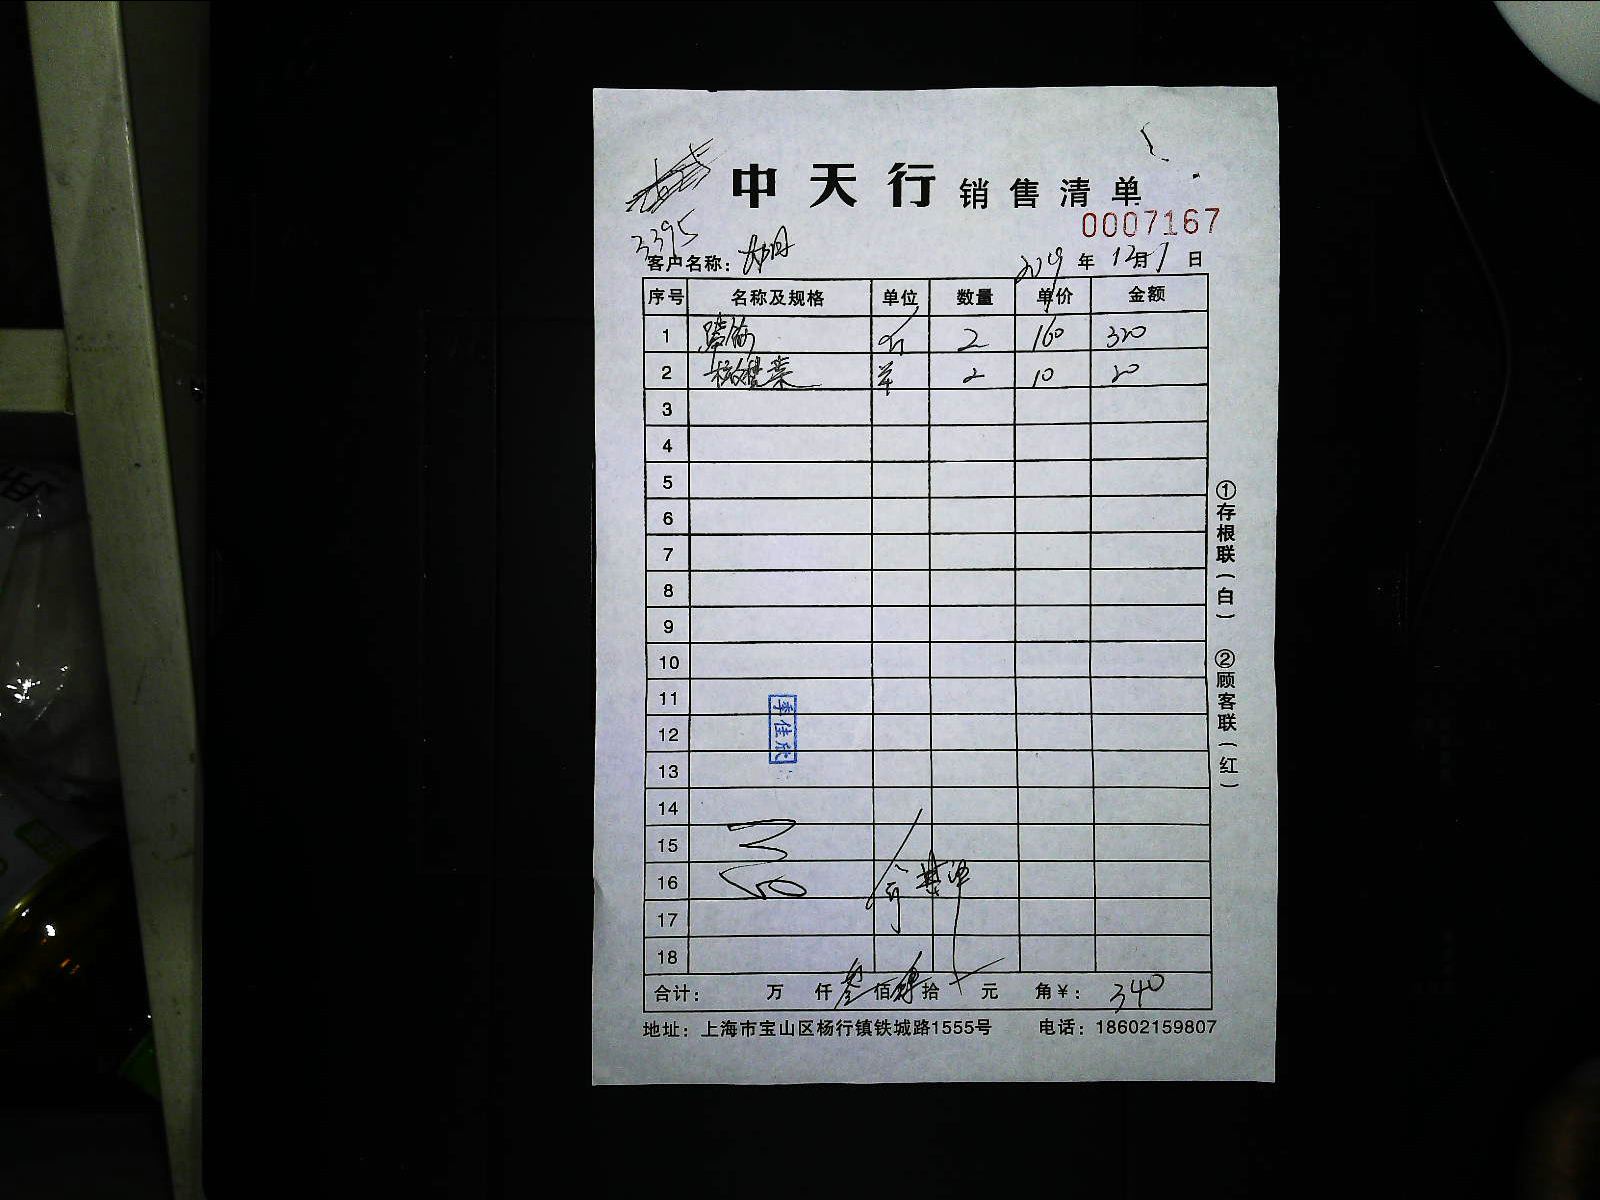 中天行 销售清单
0007167
3395
客户名称：
2019 年 12 月 7 日
序号 名称及规格 单位 数量 单价 金额
1 2 160 320
2 橄榄菜 2 10 20
3
4
5
6
7
8
9
10
11
12
13
14
15
16
17
18
季佳欣
合计： 万 仟 叁 佰 肆 拾 元 角 ¥： 340
地址：上海市宝山区杨行镇铁城路1555号 电话：18602159807
①存根联（白） ②顾客联（红）